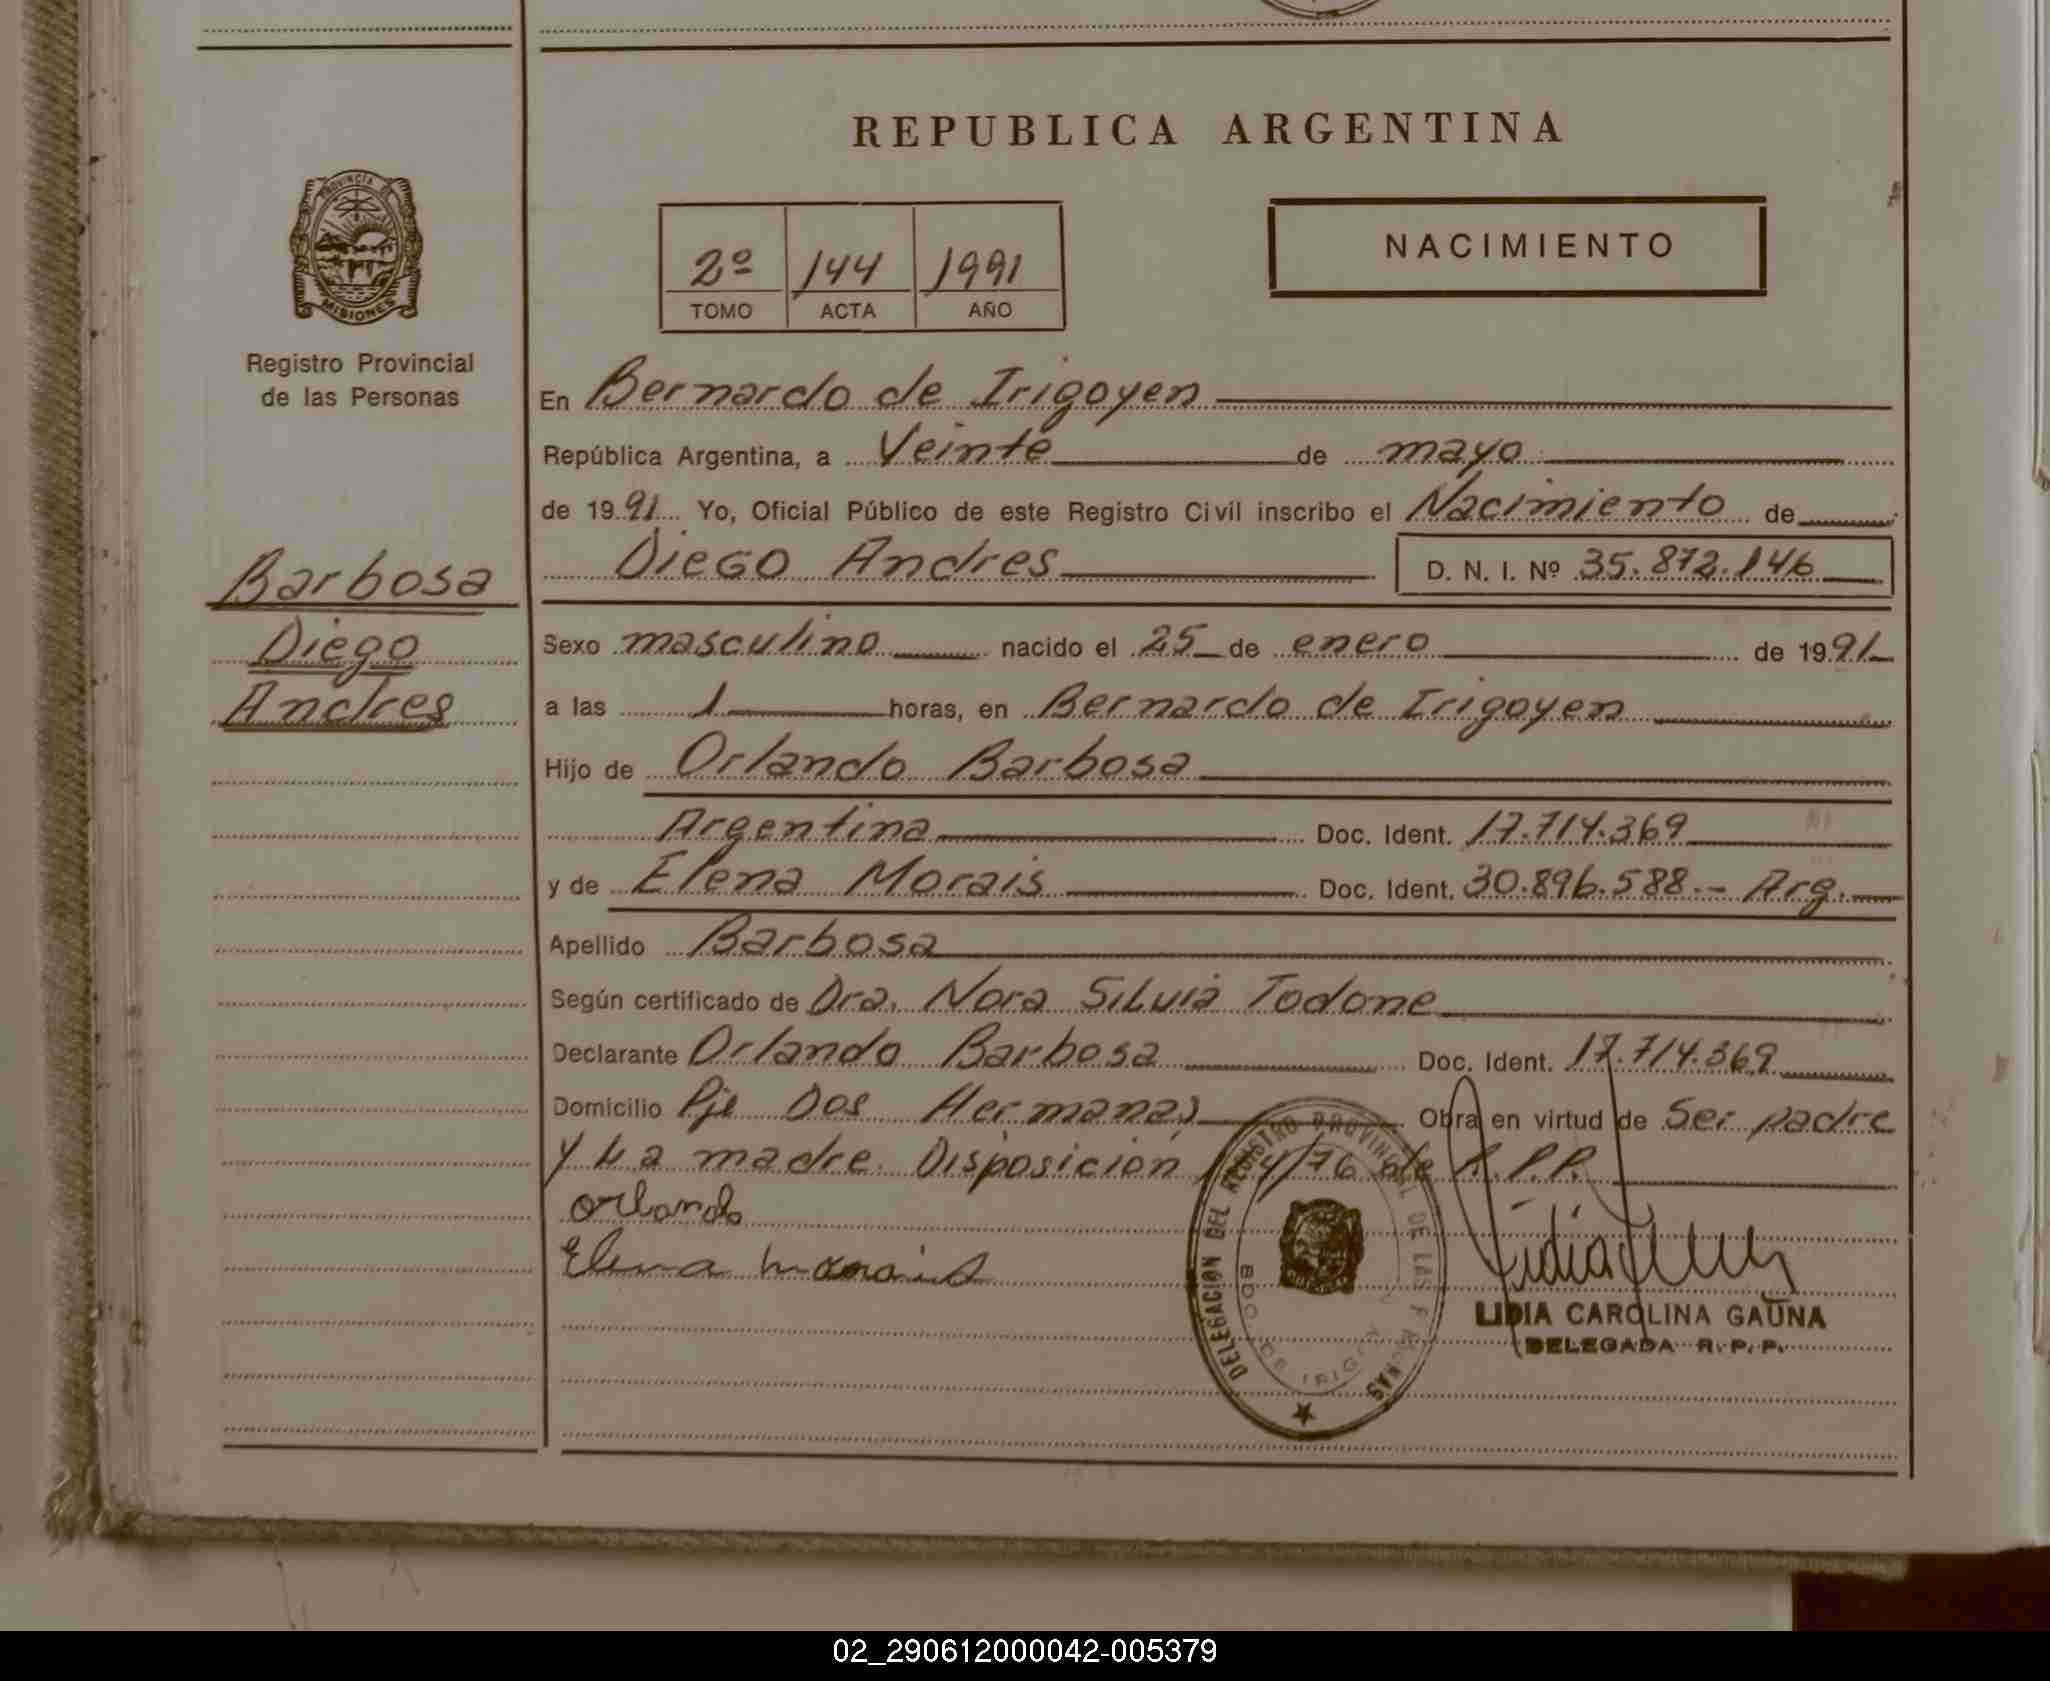 REPUBLICA ARGENTINA
PROVINCIA DE
MISIONES
Registro Provincial
de las Personas
2º 144 1991
TOMO ACTA AÑO
NACIMIENTO
En Bernardo de Irigoyen
República Argentina, a Veinte de mayo
de 1991 Yo, Oficial Público de este Registro Civil inscribo el Nacimiento de
Diego Andres D. N. I. Nº 35.872.146
Barbosa
Diego
Andres
Sexo masculino nacido el 25 de enero de 1991
a las 1 horas, en Bernardo de Irigoyen
Hijo de Orlando Barbosa
Argentina Doc. Ident. 17.714.369
y de Elena Morais Doc. Ident. 30.896.588.- Arg.
Apellido Barbosa
Según certificado de Dra. Nora Silvia Todone
Declarante Orlando Barbosa Doc. Ident. 17.714.369
Domicilio Pje Dos Hermanas Obra en virtud de Ser padre
y La madre. Disposición /76 de R.P.P.
Orlando
Elena morais
DELEGACION DEL REGISTRO PROVINCIAL DE LAS PERSONAS
BDO DE IRIGOYEN
Lidia
LIDIA CAROLINA GAUNA
DELEGADA R. P. P.
02_290612000042-005379